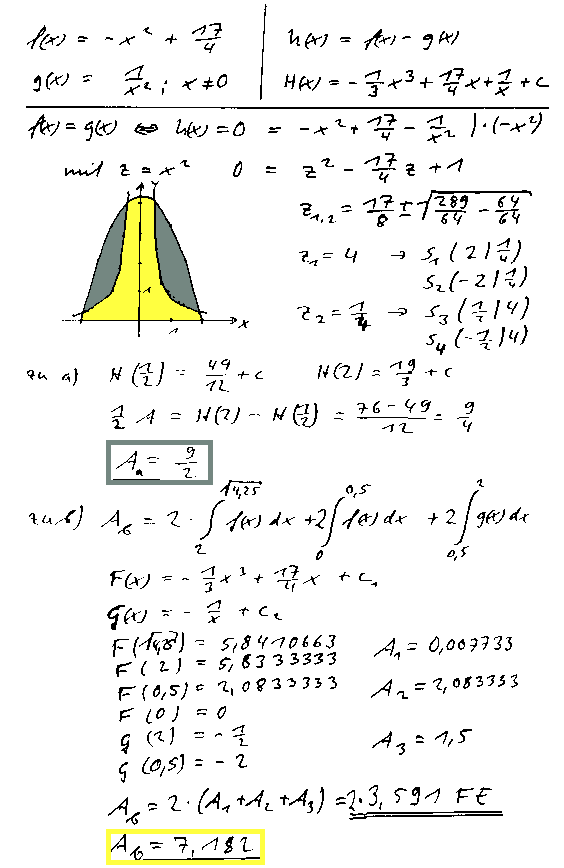 f(x) = -x² + 17/4
h(x) = f(x) - g(x)
g(x) = 1/x² ; x ≠ 0
H(x) = -1/3 x³ + 17/4 x + 1/x + c
f(x) = g(x) ⇔ h(x) = 0 = -x² + 17/4 - 1/x² | ·(-x²)
mit z = x² 0 = z² - 17/4 z + 1
z₁,₂ = 17/8 ± √(289/64 - 64/64)
z₁ = 4 → S₁ (2 | 1/4)
S₂ (-2 | 1/4)
z₂ = 1/4 → S₃ (1/2 | 4)
S₄ (-1/2 | 4)
Y
1
1
x
zu a) H(1/2) = 49/12 + c H(2) = 19/3 + c
1/2 A = H(2) - H(1/2) = (76-49)/12 = 9/4
Aₐ = 9/2
zu b) A_b = 2 · ∫₂^√4,25 f(x) dx + 2 ∫₀^0,5 f(x) dx + 2 ∫_0,5^2 g(x) dx
F(x) = -1/3 x³ + 17/4 x + c₁
G(x) = -1/x + c₂
F(√4,25) = 5,8410663 A₁ = 0,007733
F(2) = 5,8333333
F(0,5) = 2,0833333 A₂ = 2,083333
F(0) = 0
G(2) = -1/2 A₃ = 1,5
G(0,5) = -2
A_b = 2 · (A₁ + A₂ + A₃) = 2·3,591 FE
A_b = 7,182